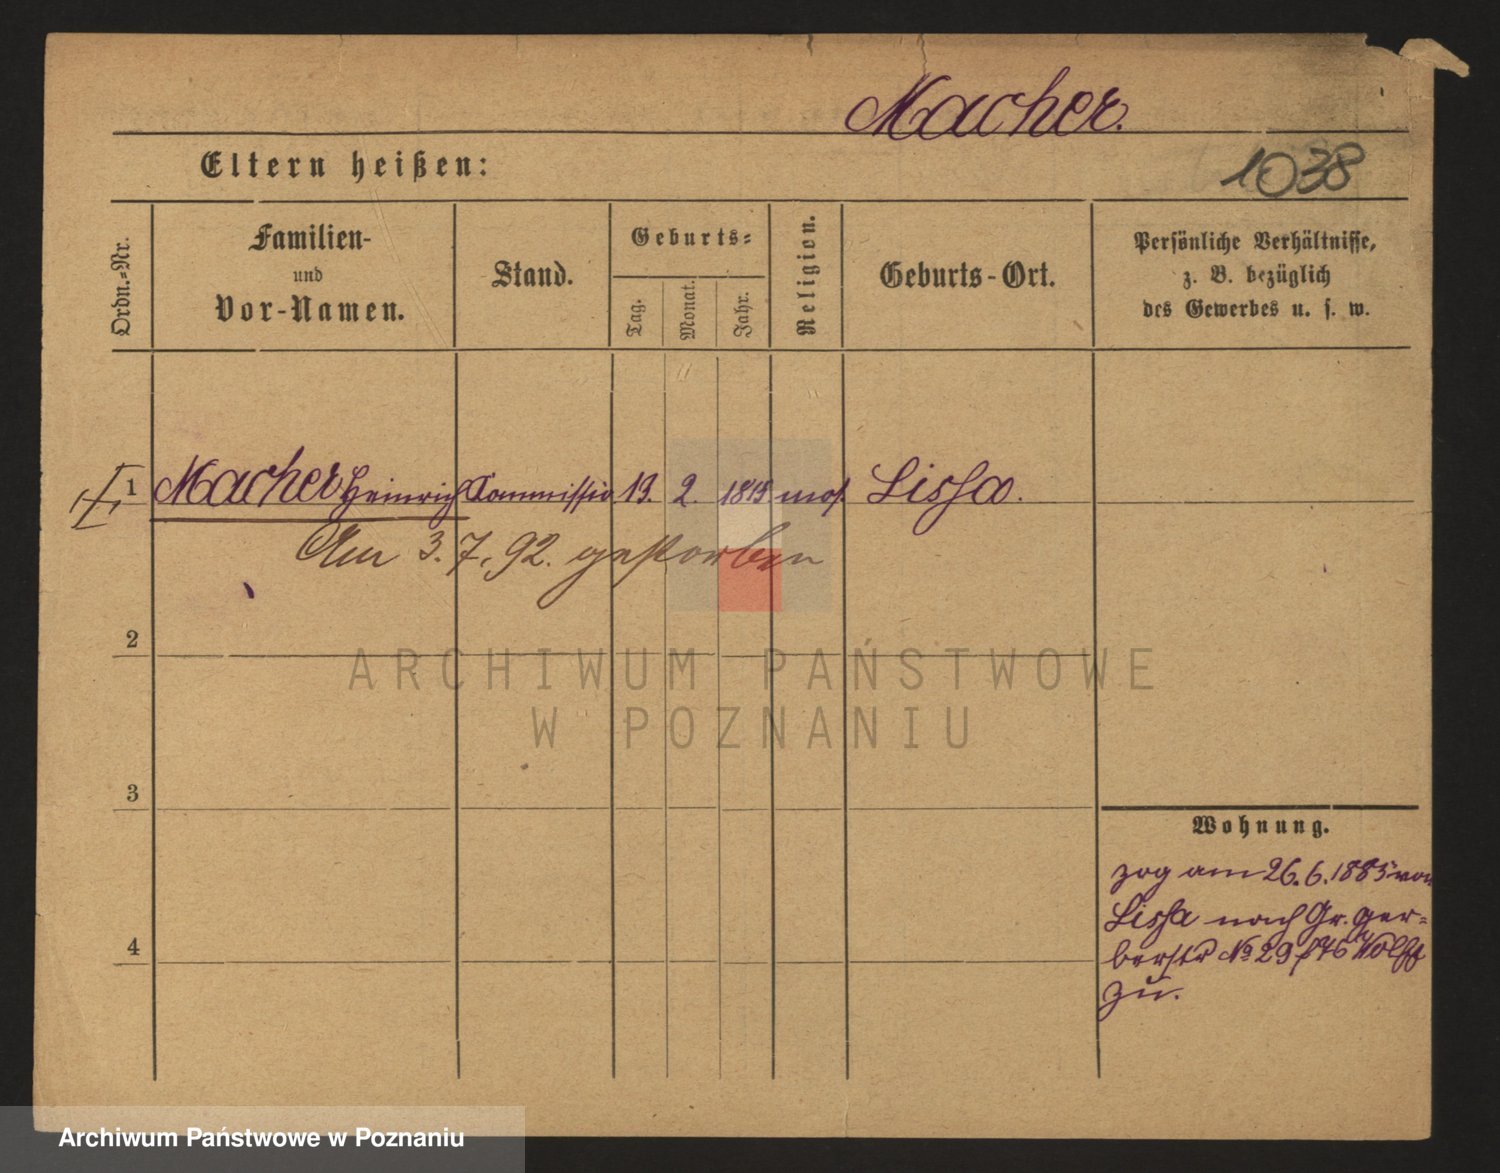 Macher.
Eltern heißen:
1038
Ordn.-Nr.
Familien-
und
Vor-Namen.
Stand.
Geburts-
Tag.
Monat.
Jahr.
Religion.
Geburts-Ort.
Persönliche Verhältnisse,
z. B. bezüglich
des Gewerbes u. s. w.
1 Macher Heinrich Commissio. 19. 2. 1815 mos. Lissa.
Am 3.7.92. gestorben
2
ARCHIWUM PAŃSTWOWE
W POZNANIU
3
Wohnung.
zog am 26.6.1885 von
Lissa nach Gr. Ger-
berstr No 29 Wolff
zu.
4
Archiwum Państwowe w Poznaniu